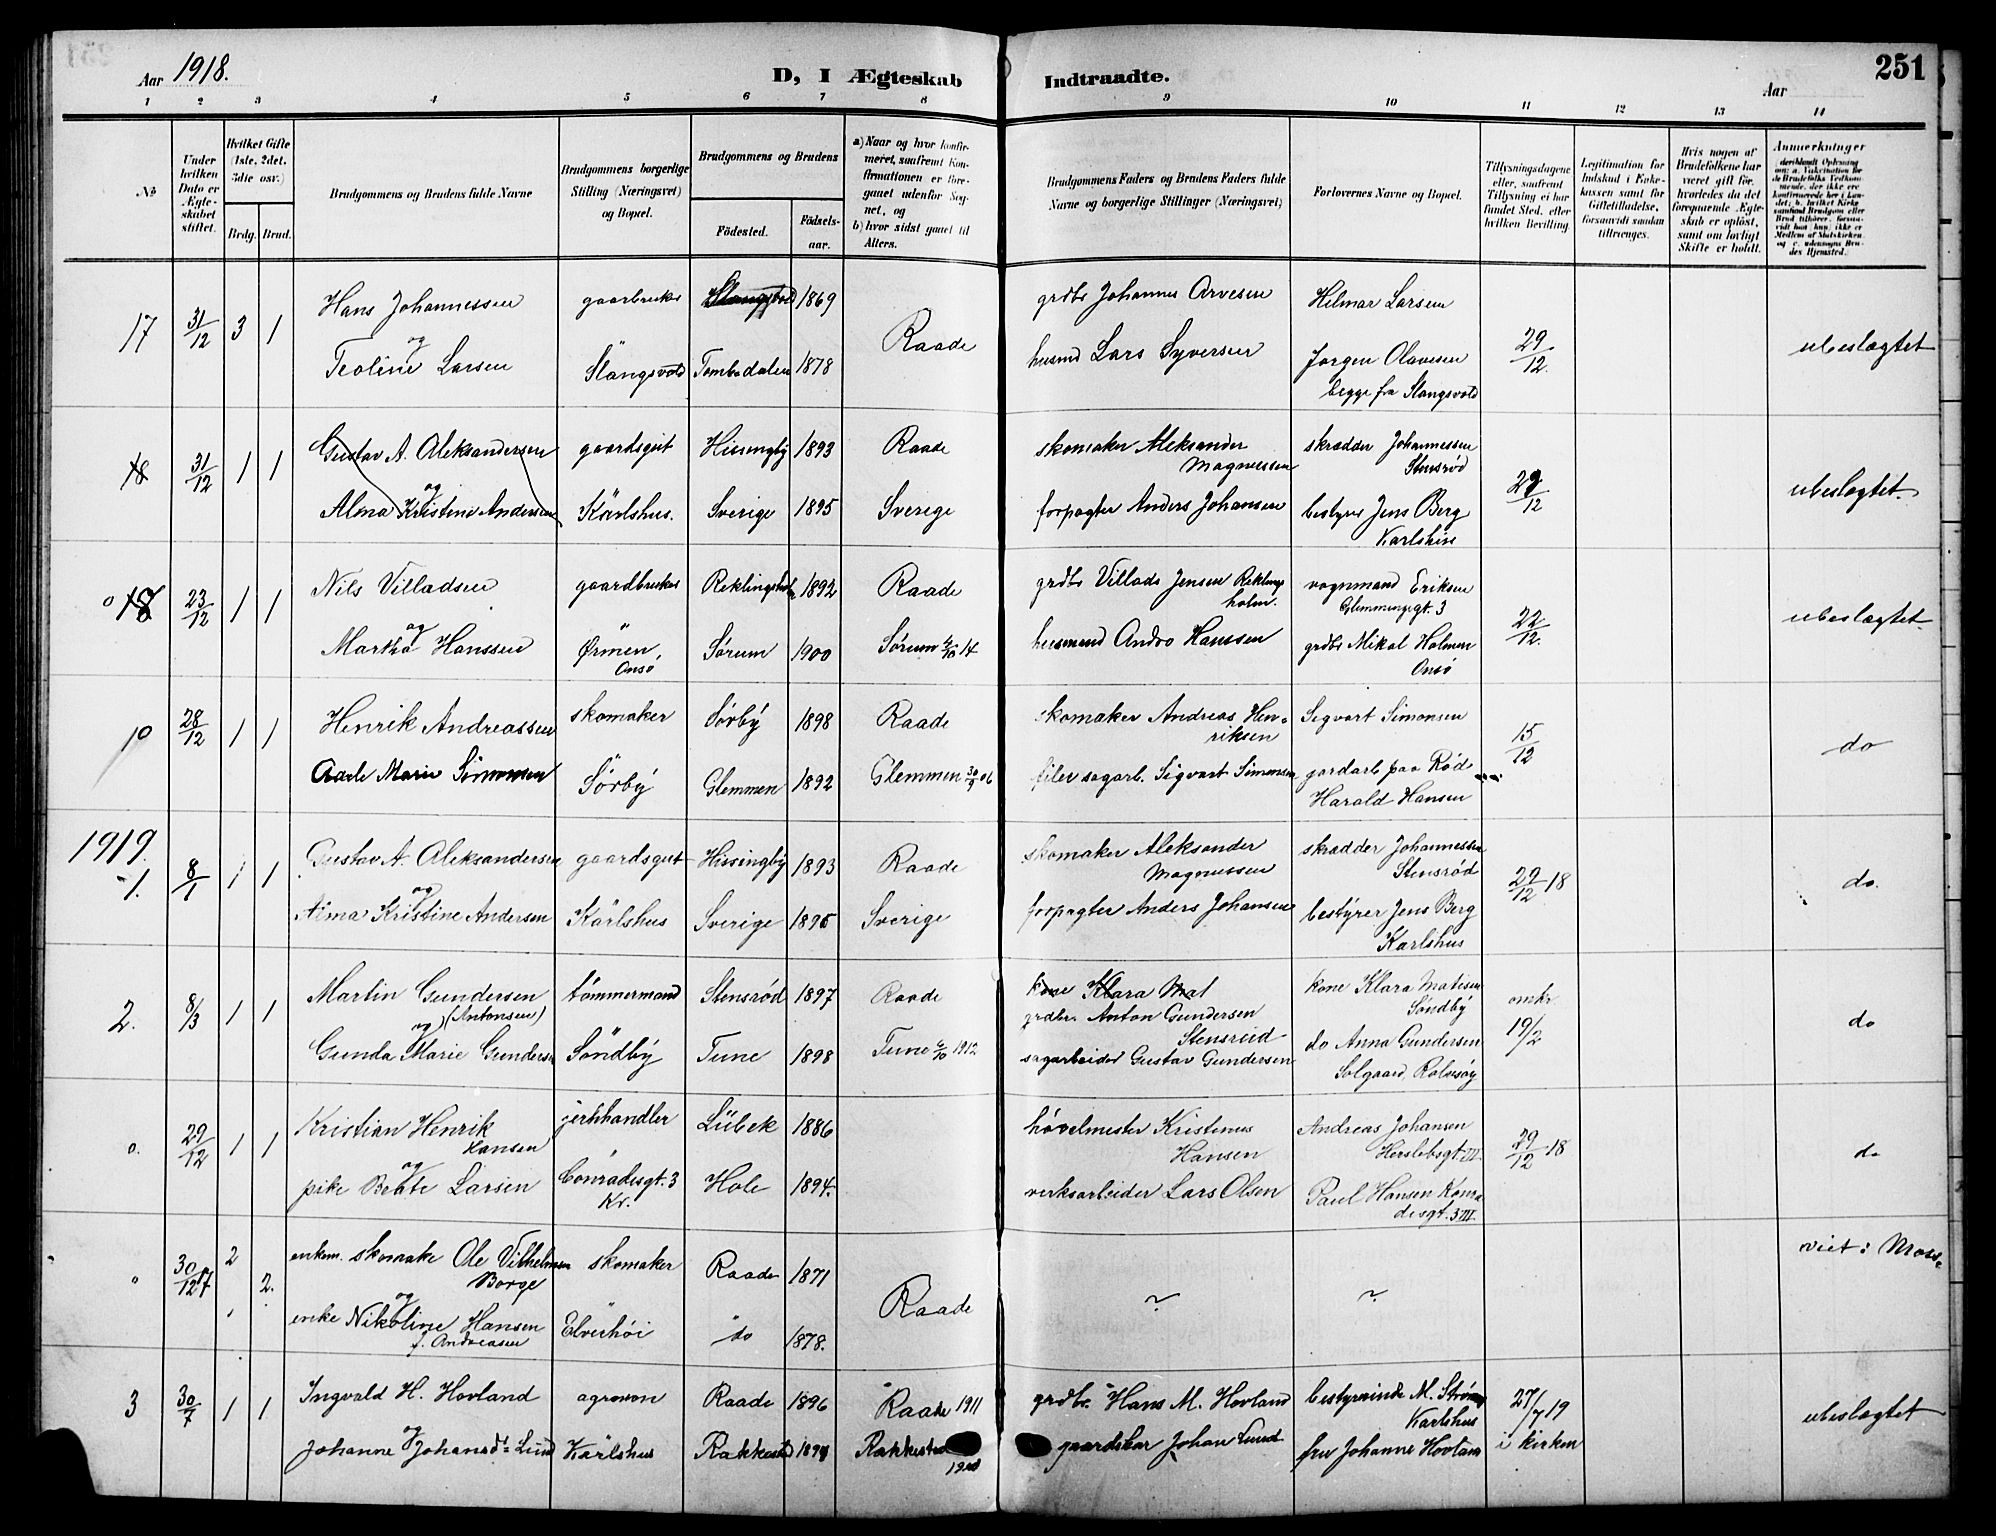 Aar 1918.
D, I Ægteskab Indtraadte.
251
Aar
1 2 3 4 5 6 7 8 9 10 11 12 13 14
No
Under hvilken Dato er Ægteskabet stiftet.
Hvilket Gifte (1ste, 2det, 3die osv.)
Brdg. Brud.
Brudgommens og Brudens fulde Navne
Brudgommens borgerlige Stilling (Næringsvei) og Bopæl.
Brudgommens og Brudens
Födested.
Födsels-aar.
a) Naar og hvor konfirmeret, saafremt Konfirmationen er foregaaet udenfor Sognet, og
b) hvor sidst gaaet til Alters.
Brudgommens Faders og Brudens Faders fulde Navne og borgerlige Stillinger (Næringsvei)
Forlovernes Navne og Bopæl.
Tillysningsdagene eller, saafremt Tillysning ei har fundet Sted, efter hvilken Bevilling.
Legitimation for Indskud i Enkekassen samt for Giftetilladelse, forsaavidt saadan tiltrænges.
Hvis nogen af Brudefolkene har været gift för, hvorledes da det foregaaende Ægteskab er oplöst, samt om lovligt Skifte er holdt.
Anmærkninger
17 31/12 3 1 Hans Johannessen gaarbruker Slangsvold 1869 Raade grdbr Johannes Arvesen Hilmar Larsen 29/12. ubeslægtet
og
Teoline Larsen Slangsvold Tombsdalen 1878 husmd Lars Syversen Jørgen Olavesen
begge fra Slangsvold
18 31/12 1 1 Gustav A. Aleksandersen gaardsgut Hissingby 1893 Raade skomaker Aleksander Magnussen skrædder Johannessen Stensrød 29/12 ubeslægtet.
og
Alma Kristine Andersen Karlshus. Sverige 1895 Sverige forpagter Anders Johansen bestyrer Jens Berg
Karlshus
o 18 23/12 1 1 Nils Villadsen gaardbruker Reklingsholm 1892 Raade grdbr Villads Jensen Reklingsholm. vognmand Eriksen Glemmengt. 3 22/12. ubeslægtet
og
Martha Hanssen Ørmen, Onsø Sørum 1900 Sørum 4/10 14 husmand Andro Hanssen grdbr Mikal Holmen
Onsø
19 28/12 1 1 Henrik Andreassen skomaker Sørby 1898 Raade skomaker Andreas Henriksen Sigvart Simonsen 15/12 do
Marie Simonsen Sørby Glemmen 1892 Glemmen 30/9 06 filer sagarb. Sigvart Simonsen gardarb paa Rød
Harald Hansen
1919.
1. 8/1 1 1 Gustav A. Aleksandersen gaardsgut Hissingby 1893 Raade skomaker Aleksander Magnussen skrædder Johannessen Stensrød 29/12 18 do.
og
Alma Kristine Andersen Karlshus Sverige 1895 Sverige forpagter Anders Johansen bestyrer Jens Berg
Karlshus
2. 8/3 1 1 Martin Gundersen (Antonsen) tømmermand Stensrød 1897 Raade kone Klara Mat kone Klara Matisen Søndby omkr. 19/2 do
og grdbr. Anton Gundersen Stensrud
Gunda Marie Gundersen Søndby Tune 1898 Tune 4/10 1912 sagarbeider Gustav Gundersen do Anna Gundersen
Solgaard, Rolvsøy
o. 29/12 1 1 Kristian Henrik Hansen jernhandler Lübek 1886 høvelmester Kristinus Hansen Andreas Johansen Herslebsgt. III. 29/12 18 do
og
pike Beate Larsen Conradisgt. 3 Kr. Hole 1894. verksarbeider Lars Olsen Paul Hansen Konradisgt. 3 III.
o 30/12 17 2 2. enkem. skomake Ole Vilhelmsen Borge skomaker Raade 1871 Raade ~ ~ viet i Moss.
og
enke Nikoline Hansen f. Andreasen Elverhøi do 1878.
3 30/7 1 1 Ingvald H. Hovland agronom Raade 1896 Raade 1911 grdbr. Hans M. Hovland bestyrerinde M. Strøm Karlshus 27/7 19 i kirken ubeslægtet
og
Johanne Johansdr Lund Karlshus Rakkestad Rakkestad gaardskar Johan Lund fru Johanne Hovland